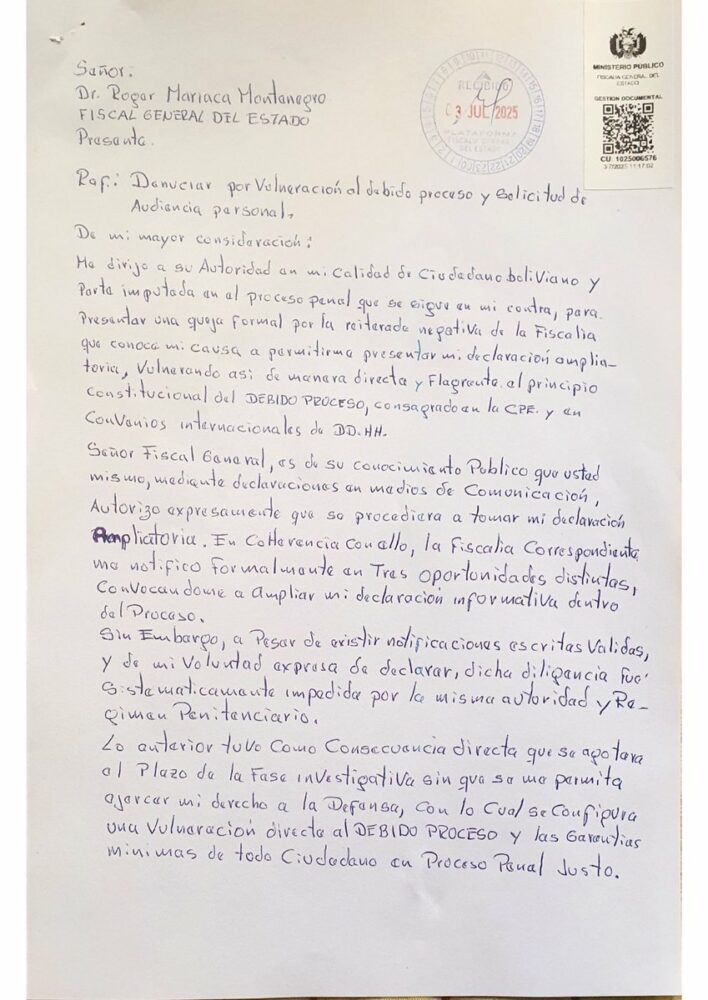 Señor.
Dr. Roger Mariaca Montenegro
FISCAL GENERAL DEL ESTADO
Presente.
RECIBIDO
03 JUL 2025
PLATAFORMA
FISCALIA GENERAL
DEL ESTADO
MINISTERIO PÚBLICO
FISCALIA GENERAL DEL
ESTADO
GESTION DOCUMENTAL
CU: 1025006576
3/7/2025 11:17:02
Ref.: Denuciar por Vulneración al debido proceso y Solicitud de
Audiencia personal.
De mi mayor consideración:
Me dirijo a su Autoridad en mi calidad de Ciudadano boliviano y
Parte imputada en el proceso penal que se sigue en mi contra, para
Presentar una queja formal por la reiterada negativa de la Fiscalía
que conoce mi causa a permitirme presentar mi declaración amplia-
toria, Vulnerando así de manera directa y Flagrante el principio
Constitucional del DEBIDO PROCESO, consagrado en la CPE. y en
Convenios internacionales de DD.HH.
Señor Fiscal General, es de su conocimiento Público que usted
mismo, mediante declaraciones en medios de Comunicación,
Autorizo expresamente que se procediera a tomar mi declaración
Ampliatoria. En CoHerencia con ello, la Fiscalia Correspondiente
me notifico Formalmente en Tres oportunidades distintas,
Convocandome a Ampliar mi declaración informativa dentro
del Proceso.
Sin Embargo, a Pesar de existir notificaciones escritas Validas,
y de mi Voluntad expresa de declarar, dicha diligencia fue
Sistematicamente impedida por la misma autoridad y Re-
gimen Penitenciario.
Lo anterior tuvo Como Consecuencia directa que se agotara
el Plazo de la Fase investigativa sin que se me permita
ejercer mi derecho a la Defensa, con lo Cual se Configura
una Vulneración directa al DEBIDO PROCESO y las Garantias
minimas de todo Ciudadano en Proceso Penal Justo.